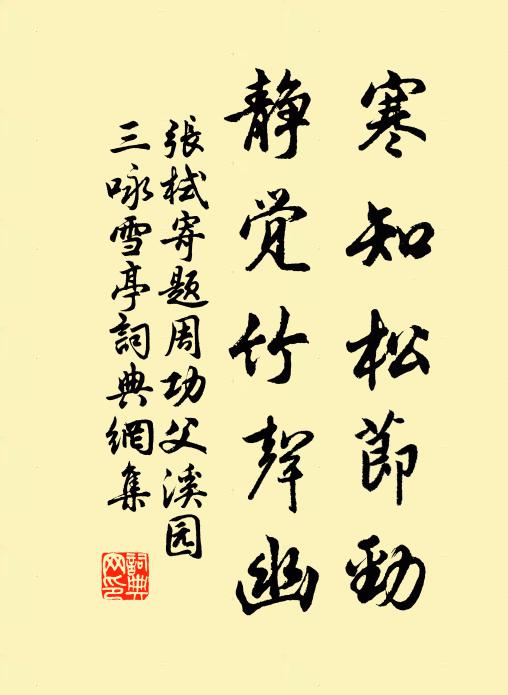 寒知松節勁
静覺竹聲幽
張栻寄題周功父溪园
三咏雪亭詞典網集
詞典網印